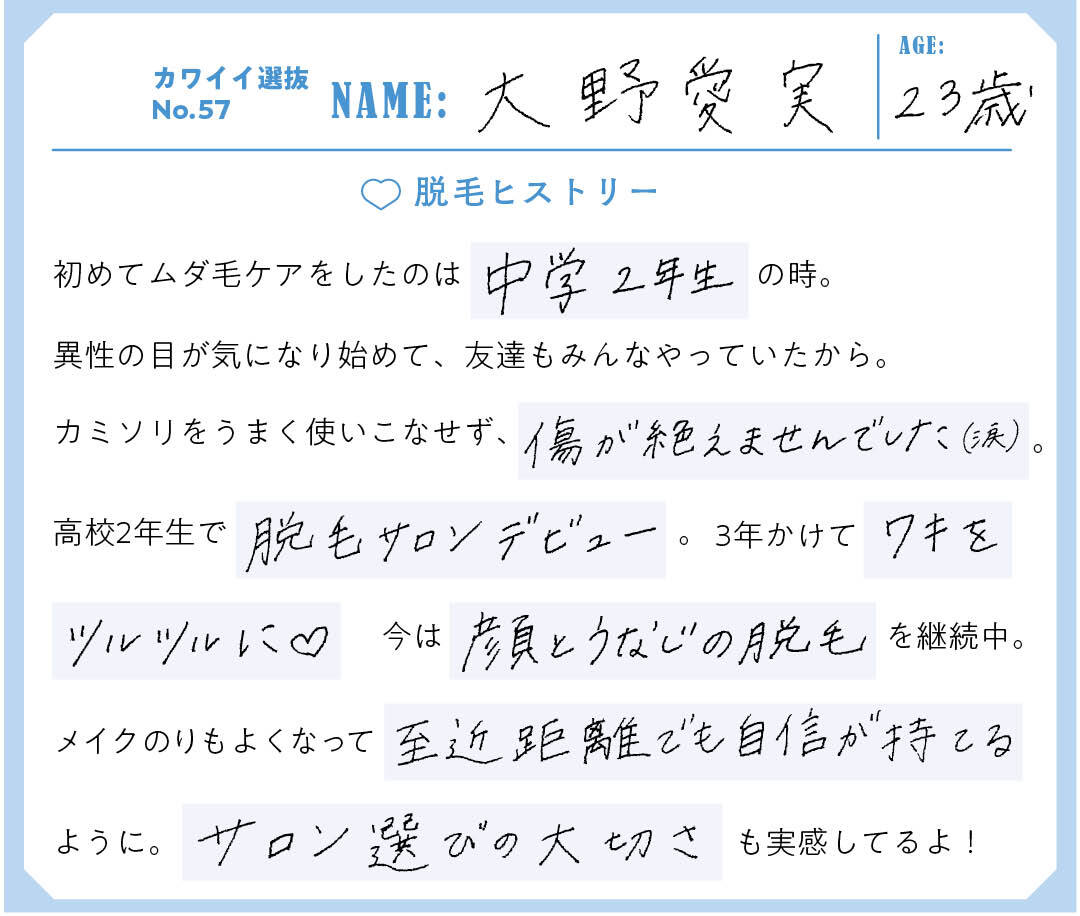 カワイイ選抜
No.57 NAME: 大野愛実 AGE: 23歳
脱毛ヒストリー
初めてムダ毛ケアをしたのは 中学2年生 の時。
異性の目が気になり始めて、友達もみんなやっていたから。
カミソリをうまく使いこなせず、傷が絶えませんでした(涙)。
高校2年生で 脱毛サロンデビュー 。3年かけて ワキを
ツルツルに♡ 今は 顔とうなじの脱毛 を継続中。
メイクのりもよくなって 至近距離でも自信が持てる
ように。サロン選びの大切さ も実感してるよ！